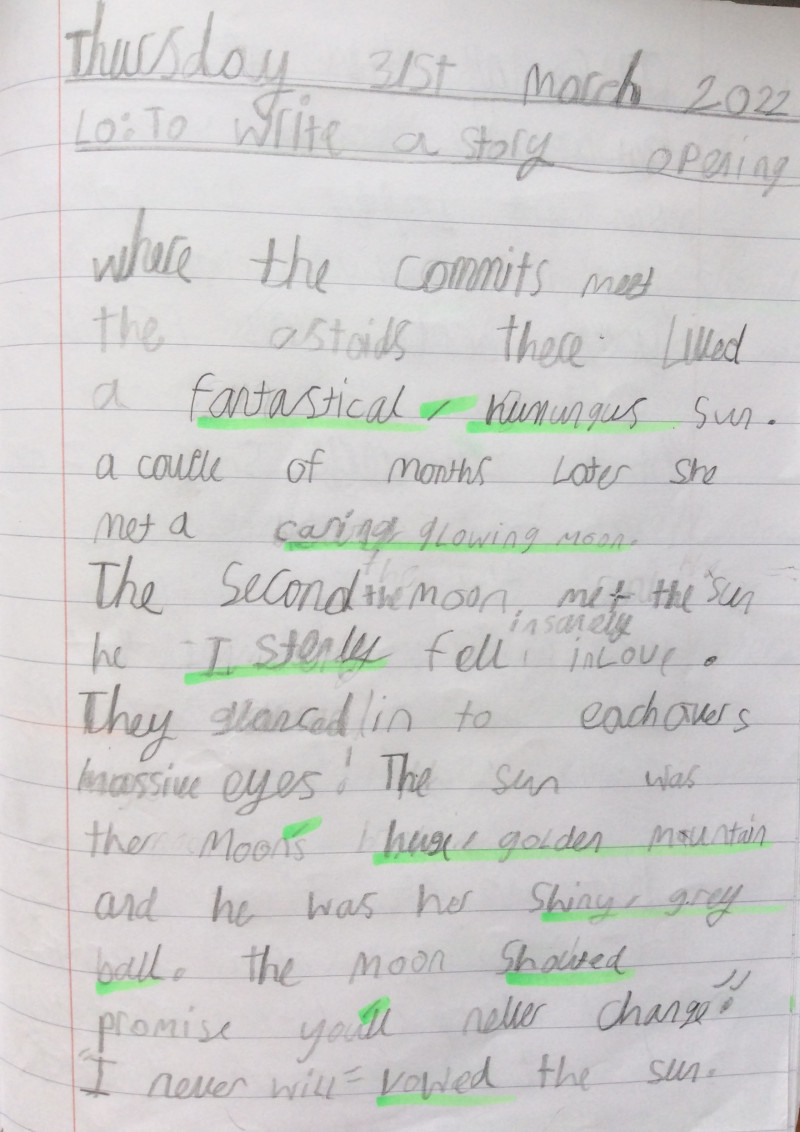 Thursday 31st march 2022
LO: To write a story opening
where the commits meet
the astoids there lived
a fantastical, humungus sun.
a couple of months later she
met a caring, glowing moon.
The second the moon, met the sun
he I stently fell insanely in love.
They glanced in to eachovers
massive eyes! The sun was
the moon's huge, golden mountain
and he was her shiny, grey
ball. the moon shouted
promise you'll never change!"
"I never will" vowed the sun.